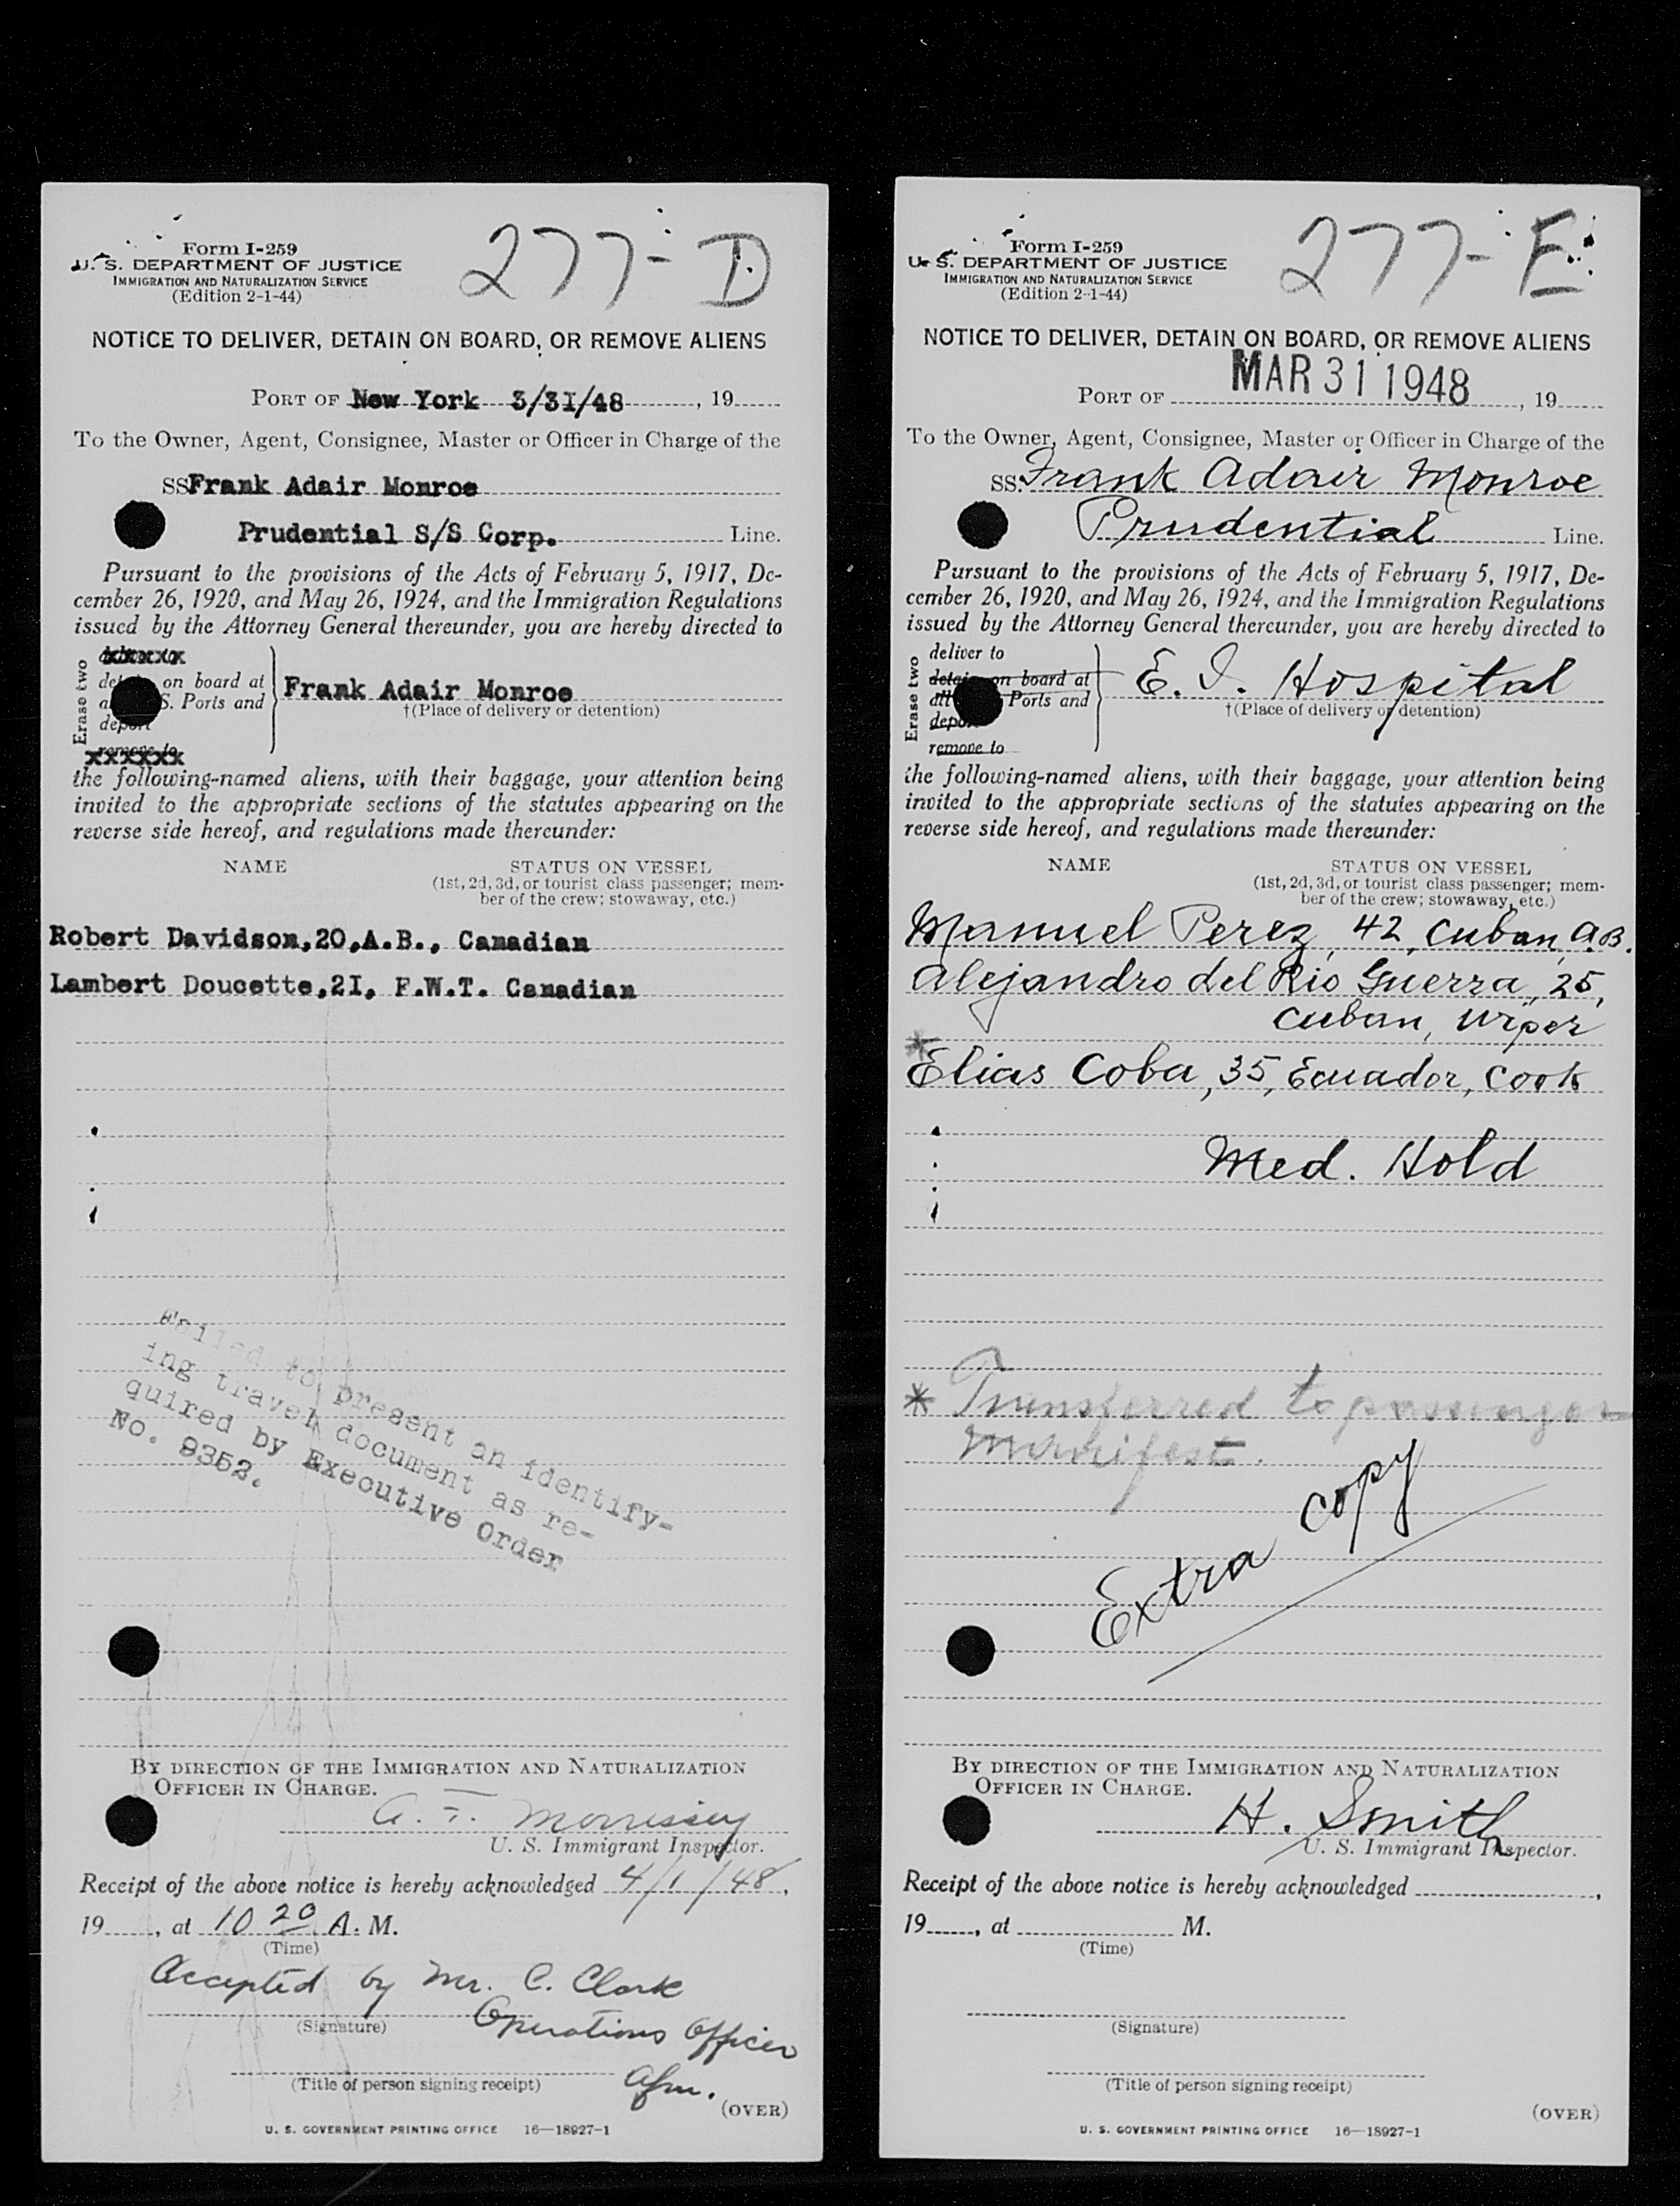 277- D
Form I-259
U. S. DEPARTMENT OF JUSTICE
IMMIGRATION AND NATURALIZATION SERVICE
(Edition 2-1-44)
NOTICE TO DELIVER, DETAIN ON BOARD, OR REMOVE ALIENS
PORT OF New York 3/31/48, 19
To the Owner, Agent, Consignee, Master or Officer in Charge of the
SS Frank Adair Monroe
Prudential S/S Corp. Line.
Pursuant to the provisions of the Acts of February 5, 1917, De-
cember 26, 1920, and May 26, 1924, and the Immigration Regulations
issued by the Attorney General thereunder, you are hereby directed to
Erase two
xxxxxx
on board at
S. Ports and
Frank Adair Monroe
†(Place of delivery or detention)
deport
remove to
xxxxxx
the following-named aliens, with their baggage, your attention being
invited to the appropriate sections of the statutes appearing on the
reverse side hereof, and regulations made thereunder:
NAME STATUS ON VESSEL
(1st, 2d, 3d, or tourist class passenger; mem-
ber of the crew; stowaway, etc.)
Robert Davidson, 20, A.B., Canadian
Lambert Doucette, 21, F.W.T. Canadian
Failed to present an identify-
ing travel document as re-
quired by Executive Order
No. 9352.
BY DIRECTION OF THE IMMIGRATION AND NATURALIZATION
OFFICER IN CHARGE.
A. F. Morrissey
U. S. Immigrant Inspector.
Receipt of the above notice is hereby acknowledged 4/1/48,
19, at 10 20 A. M.
(Time)
Accepted by Mr. C. Clark
(Signature) Operations Officer
(Title of person signing receipt) afm.
(OVER)
U. S. GOVERNMENT PRINTING OFFICE 16—18927-1
277- E
Form I-259
U. S. DEPARTMENT OF JUSTICE
IMMIGRATION AND NATURALIZATION SERVICE
(Edition 2-1-44)
NOTICE TO DELIVER, DETAIN ON BOARD, OR REMOVE ALIENS
MAR 31 1948
PORT OF , 19
To the Owner, Agent, Consignee, Master or Officer in Charge of the
SS. Frank Adair Monroe
Prudential Line.
Pursuant to the provisions of the Acts of February 5, 1917, De-
cember 26, 1920, and May 26, 1924, and the Immigration Regulations
issued by the Attorney General thereunder, you are hereby directed to
Erase two
deliver to
detain on board at
all Ports and
E. I. Hospital
†(Place of delivery or detention)
deport
remove to
the following-named aliens, with their baggage, your attention being
invited to the appropriate sections of the statutes appearing on the
reverse side hereof, and regulations made thereunder:
NAME STATUS ON VESSEL
(1st, 2d, 3d, or tourist class passenger; mem-
ber of the crew; stowaway, etc.)
Manuel Perez, 42, Cuban, A.B.
Alejandro del Rio Guerra, 25,
Cuban, Wiper
*
Elias Coba, 35, Ecuador, Cook
Med. Hold
* Transferred to passenger
manifest.
Extra copy
BY DIRECTION OF THE IMMIGRATION AND NATURALIZATION
OFFICER IN CHARGE.
H. Smith
U. S. Immigrant Inspector.
Receipt of the above notice is hereby acknowledged ,
19, at M.
(Time)
(Signature)
(Title of person signing receipt)
(OVER)
U. S. GOVERNMENT PRINTING OFFICE 16—18927-1